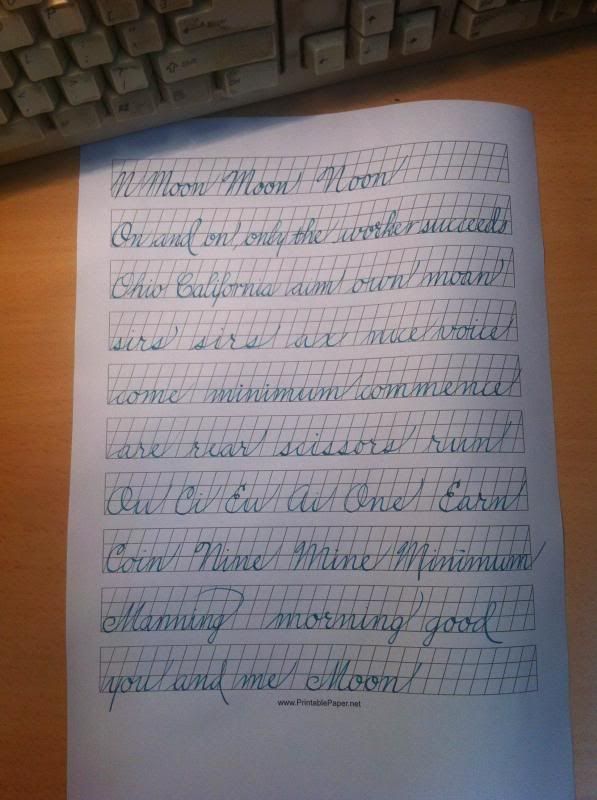 N Moon Moon Noon
On and on only the worker succeeds
Ohio California aim own moan
sirs sirs ax nice voice
come minimum commence
are rear scissors run
Ou Ci Eu Ai One Earn
Coin Nine Mine Minimum
Manning morning good
you and me Moon
www.PrintablePaper.net